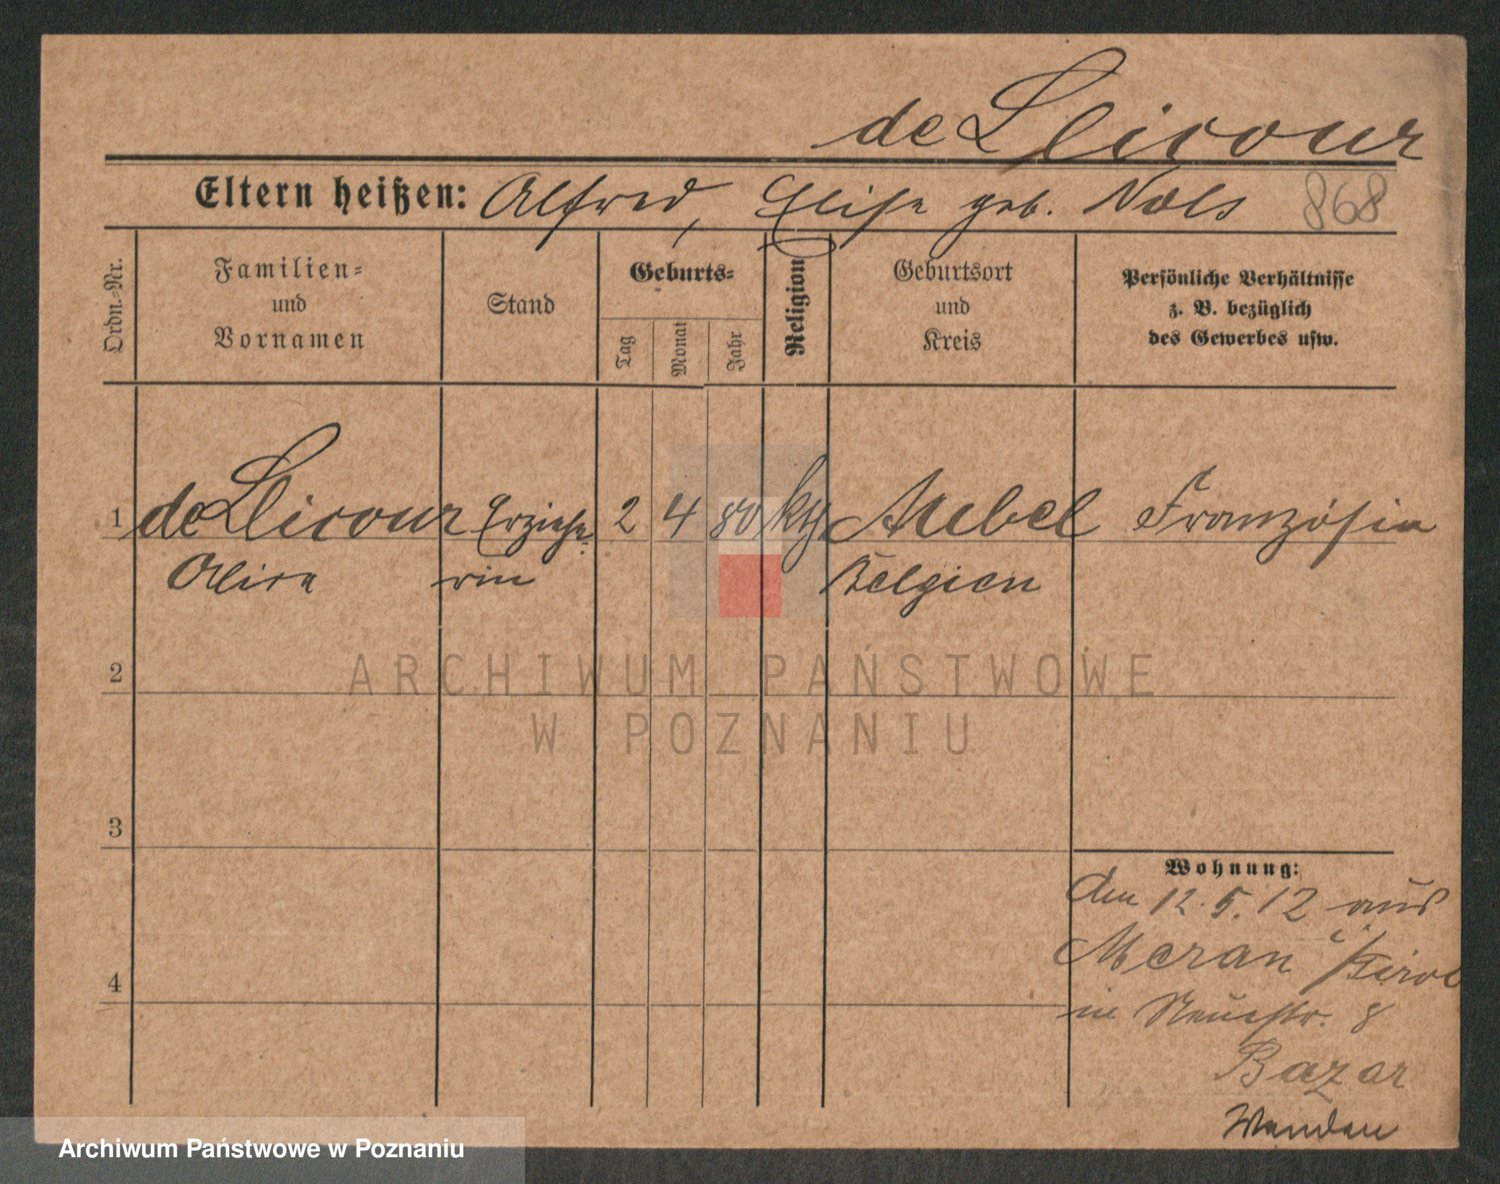 de Llicour
Eltern heißen: Alfred, Elise geb. Nols
868
Ordn.-Nr.
Familien-
und
Vornamen
Stand
Geburts-
Tag
Monat
Jahr
Religion
Geburtsort
und
Kreis
Persönliche Verhältnisse
z. B. bezüglich
des Gewerbes usw.
1 de Llicour Erziehe- 2 4 80 kth. Französin
Alice rin Belgien
2
3
4
Wohnung:
Am 12.5.12 aus
Meran i/Tirol
in Neuestr. 8
Bazar
ARCHIWUM PAŃSTWOWE
W POZNANIU
Archiwum Państwowe w Poznaniu